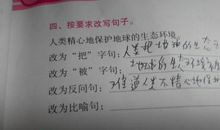 四、按要求改写句子。
人类精心地保护地球的生态环境
改为“把”字句：人类把地球的生态
改为“被”字句：地球的生态环境被
改为反问句：难道人类不精心地保护
改为比喻句：